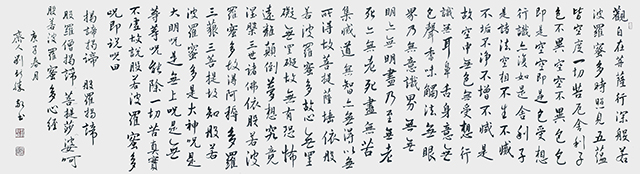 觀自在菩薩行深般若
波羅蜜多時照見五蘊
皆空度一切苦厄舍利子
色不異空空不異色色
即是空空即是色受想
行識亦復如是舍利子
是諸法空相不生不滅
不垢不淨不增不減是
故空中無色無受想行
識無眼耳鼻舌身意無
色聲香味觸法無眼
界乃至無意識界無無
明亦無無明盡乃至無老
死亦無老死盡無苦
集滅道無智亦無得以無
所得故菩提薩埵依般若波
羅蜜多故心無罣
礙無罣礙故無有恐怖
遠離顛倒夢想究竟
涅槃三世諸佛依般若波
羅蜜多故得阿耨多羅
三藐三菩提故知般若
波羅蜜多是大神咒是
大明咒是無上咒是無
等等咒能除一切苦真實
不虛故說般若波羅蜜多
咒即說咒曰
揭諦揭諦 般羅揭諦
般羅僧揭諦 菩提莎婆呵
般若波羅蜜多心經
庚子春月
齊人劉